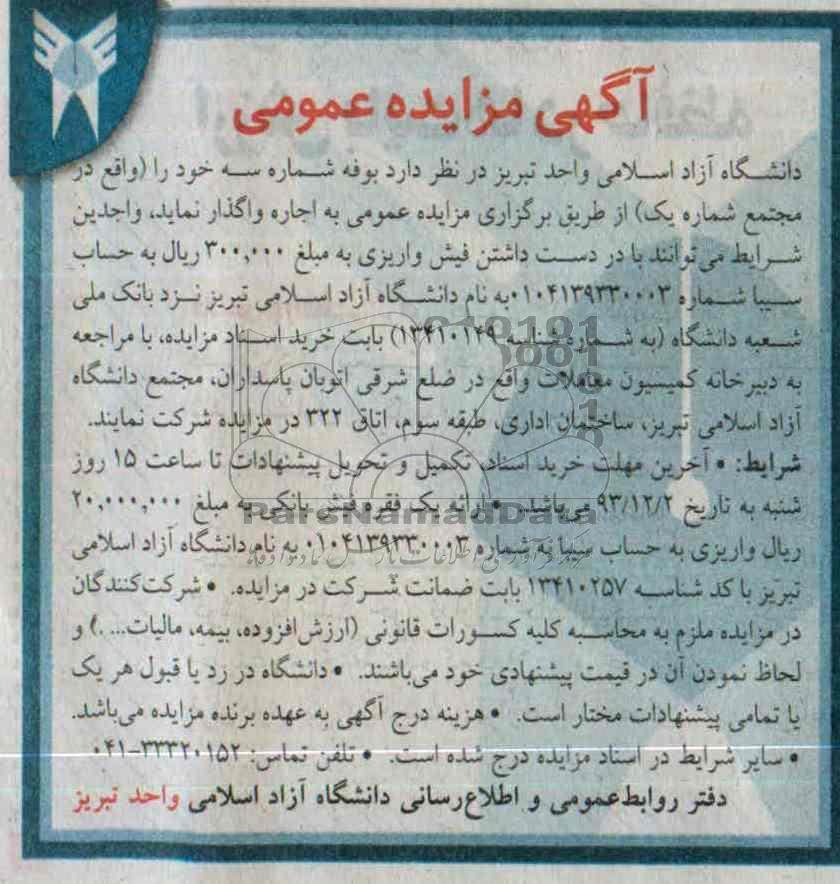 آگهی مزایده عمومی
دانشگاه آزاد اسلامی واحد تبریز در نظر دارد بوفه شماره سه خود را (واقع در
مجتمع شماره یک) از طریق برگزاری مزایده عمومی به اجاره واگذار نماید، واجدین
شرایط می‌توانند با در دست داشتن فیش واریزی به مبلغ ۳۰۰,۰۰۰ ریال به حساب
سیبا شماره ۰۱۰۴۱۳۹۳۳۰۰۰۳ به نام دانشگاه آزاد اسلامی تبریز نزد بانک ملی
شعبه دانشگاه (به شماره شناسه ۱۳۴۱۰۱۴۹) بابت خرید اسناد مزایده، با مراجعه
به دبیرخانه کمیسیون معاملات واقع در ضلع شرقی اتوبان پاسداران، مجتمع دانشگاه
آزاد اسلامی تبریز، ساختمان اداری، طبقه سوم، اتاق ۳۲۲ در مزایده شرکت نمایند.
شرایط: • آخرین مهلت خرید اسناد، تکمیل و تحویل پیشنهادات تا ساعت ۱۵ روز
شنبه به تاریخ ۹۳/۱۲/۲ می‌باشد. • ارائه یک فقره فیش بانکی به مبلغ ۲۰,۰۰۰,۰۰۰
ریال واریزی به حساب سیبا به شماره ۰۱۰۴۱۳۹۳۳۰۰۰۳ به نام دانشگاه آزاد اسلامی
تبریز با کد شناسه ۱۳۴۱۰۲۵۷ بابت ضمانت شرکت در مزایده. • شرکت‌کنندگان
در مزایده ملزم به محاسبه کلیه کسورات قانونی (ارزش‌افزوده، بیمه، مالیات... .) و
لحاظ نمودن آن در قیمت پیشنهادی خود می‌باشند. • دانشگاه در رد یا قبول هر یک
یا تمامی پیشنهادات مختار است. • هزینه درج آگهی به عهده برنده مزایده می‌باشد.
• سایر شرایط در اسناد مزایده درج شده است. • تلفن تماس: ۳۳۳۲۰۱۵۲-۰۴۱
دفتر روابط‌عمومی و اطلاع‌رسانی دانشگاه آزاد اسلامی واحد تبریز
ParsNamadData